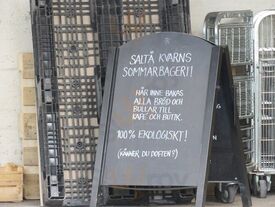 SALTÅ KVARNS
SOMMARBAGERI!
HÄR INNE BAKAS
ALLA BRÖD OCH
BULLAR TILL
KAFÉ OCH BUTIK.
100% EKOLOGISKT!
(KÄNNER DU DOFTEN?)